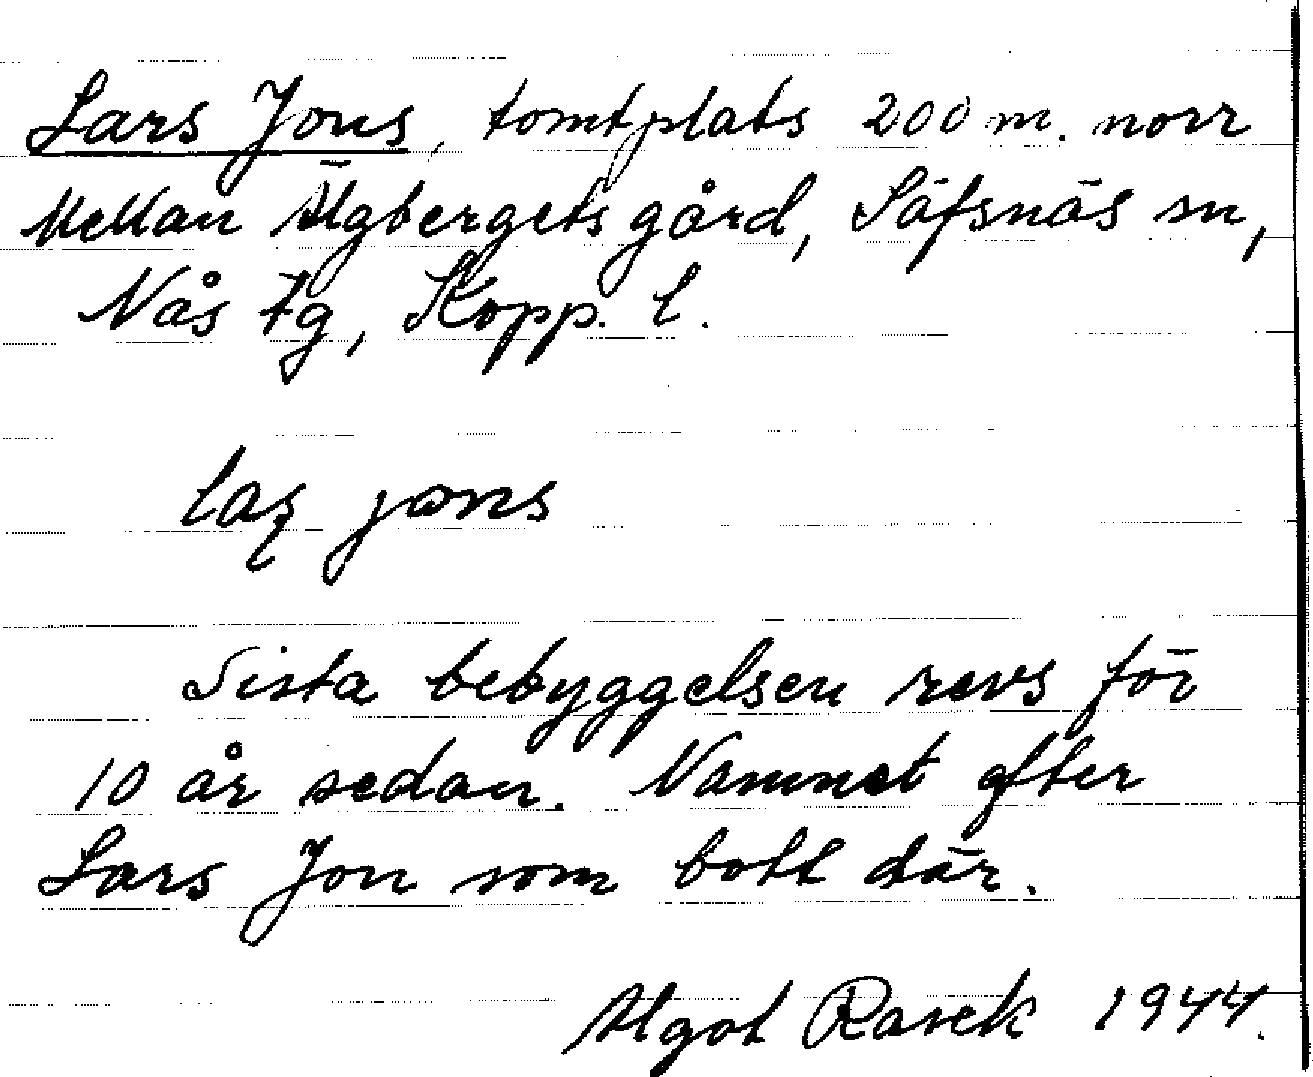 Lars Jons, tomtplats 200 m. norr
Mellan Älgbergets gård, Säfsnäs sn,
Nås tg, Kopp. l.
laʂ jɷns
Sista bebyggelsen revs för
10 år sedan. Namnet efter
Lars Jon som bott där.
Algot Rasek 1944.